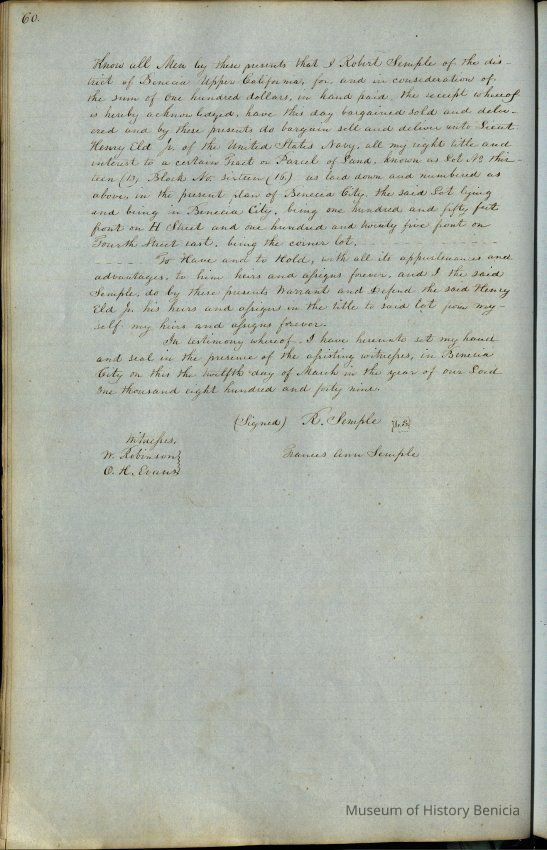 60.
Know all Men by these presents that I Robert Semple of the dis-
trict of Benicia Upper California, for and in consederation of
the sum of One hundred dollars, in hand paid the receipt whereof
is hereby acknowedged, have this day bargained sold and deliv-
ered and by these presents do bargain sell and deliver unto Lieut
Henry Eld Jr. of the United States Navy, all my right title and
interest to a certain Tract or Parcel of Land, known as Lot No thir-
teen (13) Block No. Sixteen (16) as laid down and numbered as
above, in the present plan of Benicia City, the said Lot lying
and being in Benicia City, being one hundred and fifty feet
front on H Street and one hundred and twenty five front on
Fourth Street east, being the corner lot.
To Have and to Hold, with all its appurtenances and
advantages, to him heirs and assigns forever, and I the said
Semple, do by these presents Warrant and Defend the said Henry
Eld Jr. his heirs and assigns in the title to said lot from my-
self my heirs and assigns forever.
In testimony whereof, I have hereunto set my hand
and seal in the presence of the assisting witnesses, in Benicia
City on this the twelfth day of March in the year of our Lord
One thousand eight hundred and forty nine.
(Signed) R. Semple
Witnesses,
W. Robinson Frances Ann Semple
O. H. Evans
Museum of History Benicia